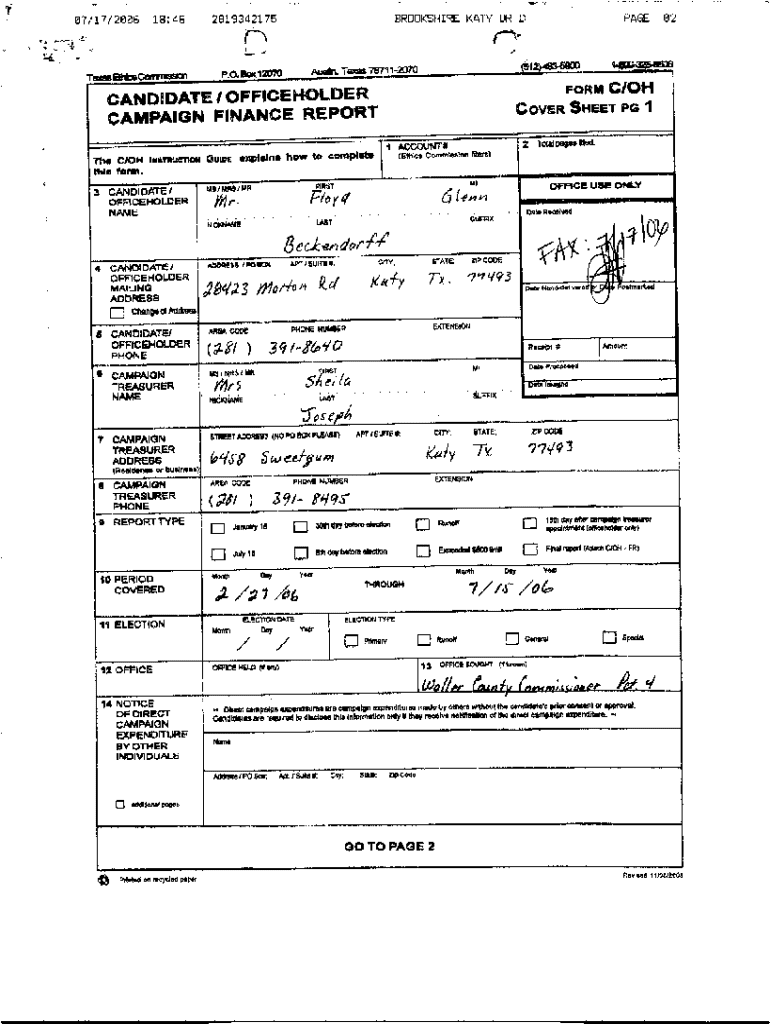 07/17/2006 18:46 2819342175 BROOKSHIRE KATY DR D PAGE 02
Texas Ethics Commission P.O. Box 12070 Austin, Texas 78711-2070 (512) 463-5800 1-800-325-8506
CANDIDATE / OFFICEHOLDER
CAMPAIGN FINANCE REPORT
FORM C/OH
COVER SHEET PG 1
The C/OH INSTRUCTION GUIDE explains how to complete this form.
1 ACCOUNT #
(Ethics Commission filers)
2 Total pages filed:
3 CANDIDATE / OFFICEHOLDER NAME
MS / MRS / MR FIRST MI
Mr. Floyd Glenn
NICKNAME LAST SUFFIX
Beckendorff
OFFICE USE ONLY
Date Received
FAX: 7/17/06
Date Hand-delivered or Date Postmarked
Receipt # Amount
Date Processed
Date Imaged
4 CANDIDATE / OFFICEHOLDER MAILING ADDRESS
Change of Address
ADDRESS / PO BOX; APT / SUITE #; CITY; STATE; ZIP CODE
28423 Morton Rd Katy Tx. 77493
5 CANDIDATE/ OFFICEHOLDER PHONE
AREA CODE PHONE NUMBER EXTENSION
(281 ) 391-8640
6 CAMPAIGN TREASURER NAME
MS / MRS / MR FIRST MI
Mrs Sheila
NICKNAME LAST SUFFIX
Joseph
7 CAMPAIGN TREASURER ADDRESS
(Residence or business)
STREET ADDRESS (NO PO BOX PLEASE); APT / SUITE #; CITY; STATE; ZIP CODE
6458 Sweetgum Katy Tx 77493
8 CAMPAIGN TREASURER PHONE
AREA CODE PHONE NUMBER EXTENSION
(281 ) 391-8495
9 REPORT TYPE
January 15 30th day before election Runoff 15th day after campaign treasurer appointment (officeholder only)
July 15 8th day before election Exceeded $500 limit Final report (Attach C/OH - FR)
10 PERIOD COVERED
Month Day Year THROUGH Month Day Year
2 /27 /06 7/15 /06
11 ELECTION
ELECTION DATE
Month Day Year
/ /
ELECTION TYPE
Primary Runoff General Special
12 OFFICE
OFFICE HELD (if any)
13 OFFICE SOUGHT (if known)
Waller County Commissioner Pct. 4
14 NOTICE OF DIRECT CAMPAIGN EXPENDITURE BY OTHER INDIVIDUALS
additional pages
Direct campaign expenditures are campaign expenditures made by others without the candidate's prior consent or approval.
Candidates are required to disclose this information only if they receive notification of the direct campaign expenditure.
Name
Address / PO Box; Apt. / Suite #; City; State; Zip Code
GO TO PAGE 2
Printed on recycled paper